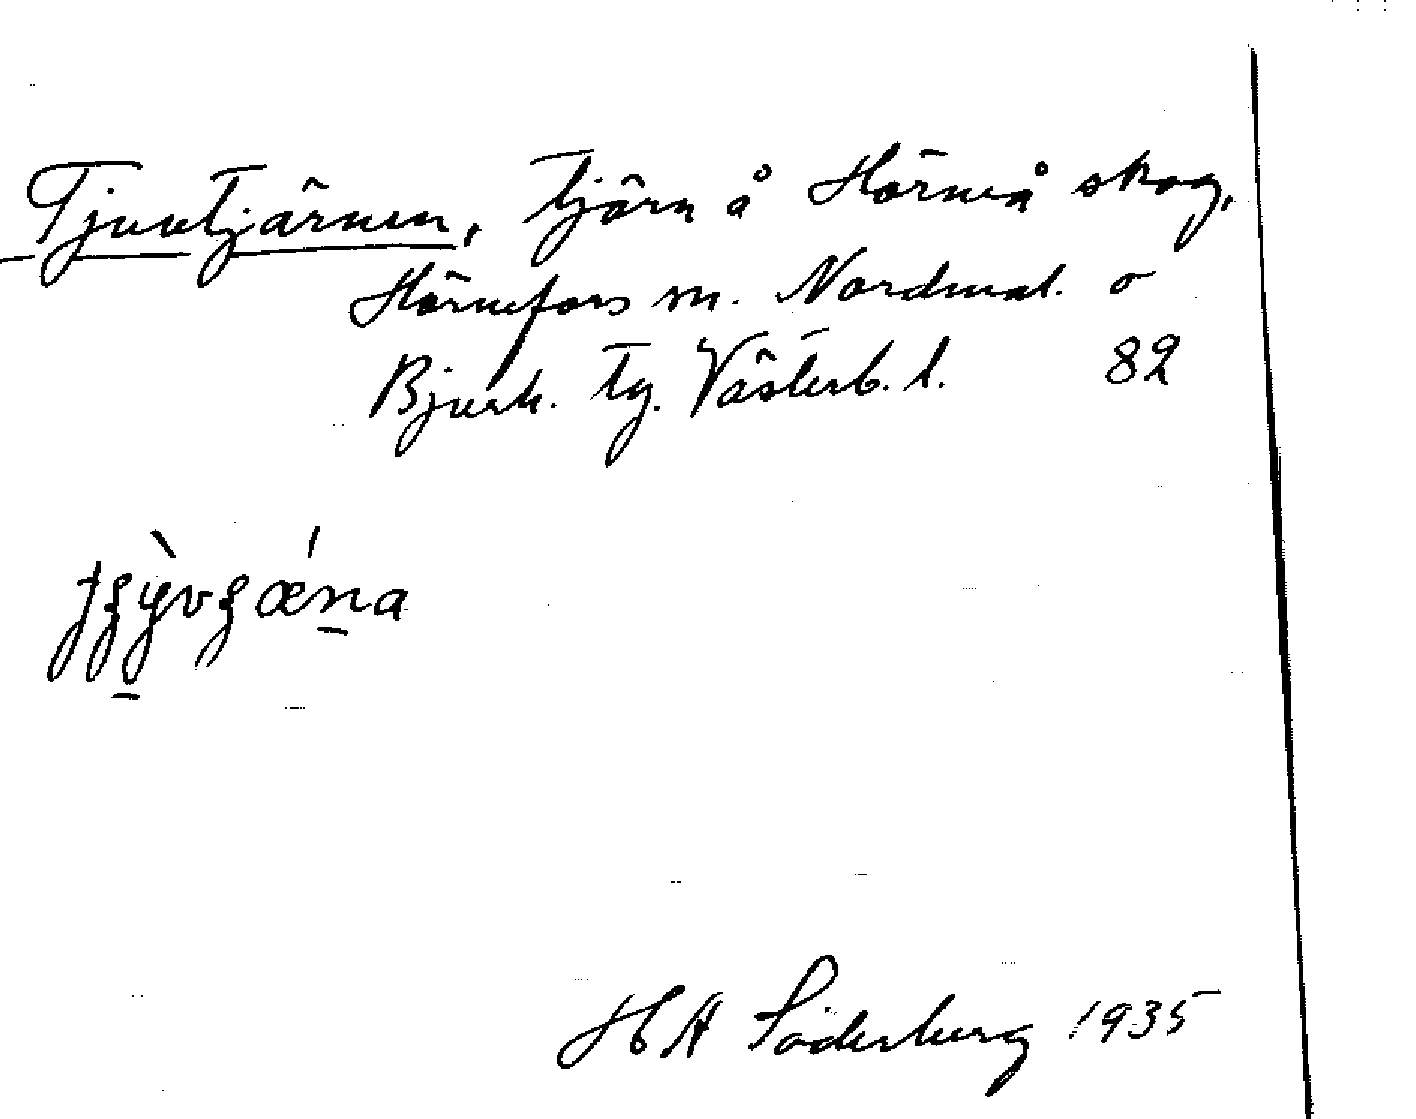 Tjuvtjärnen, tjärn å Hörneå skog,
Hörnefors sn. Nordmal. o
Bjurh. tg. Västerb. l. 82
H A Söderberg 1935